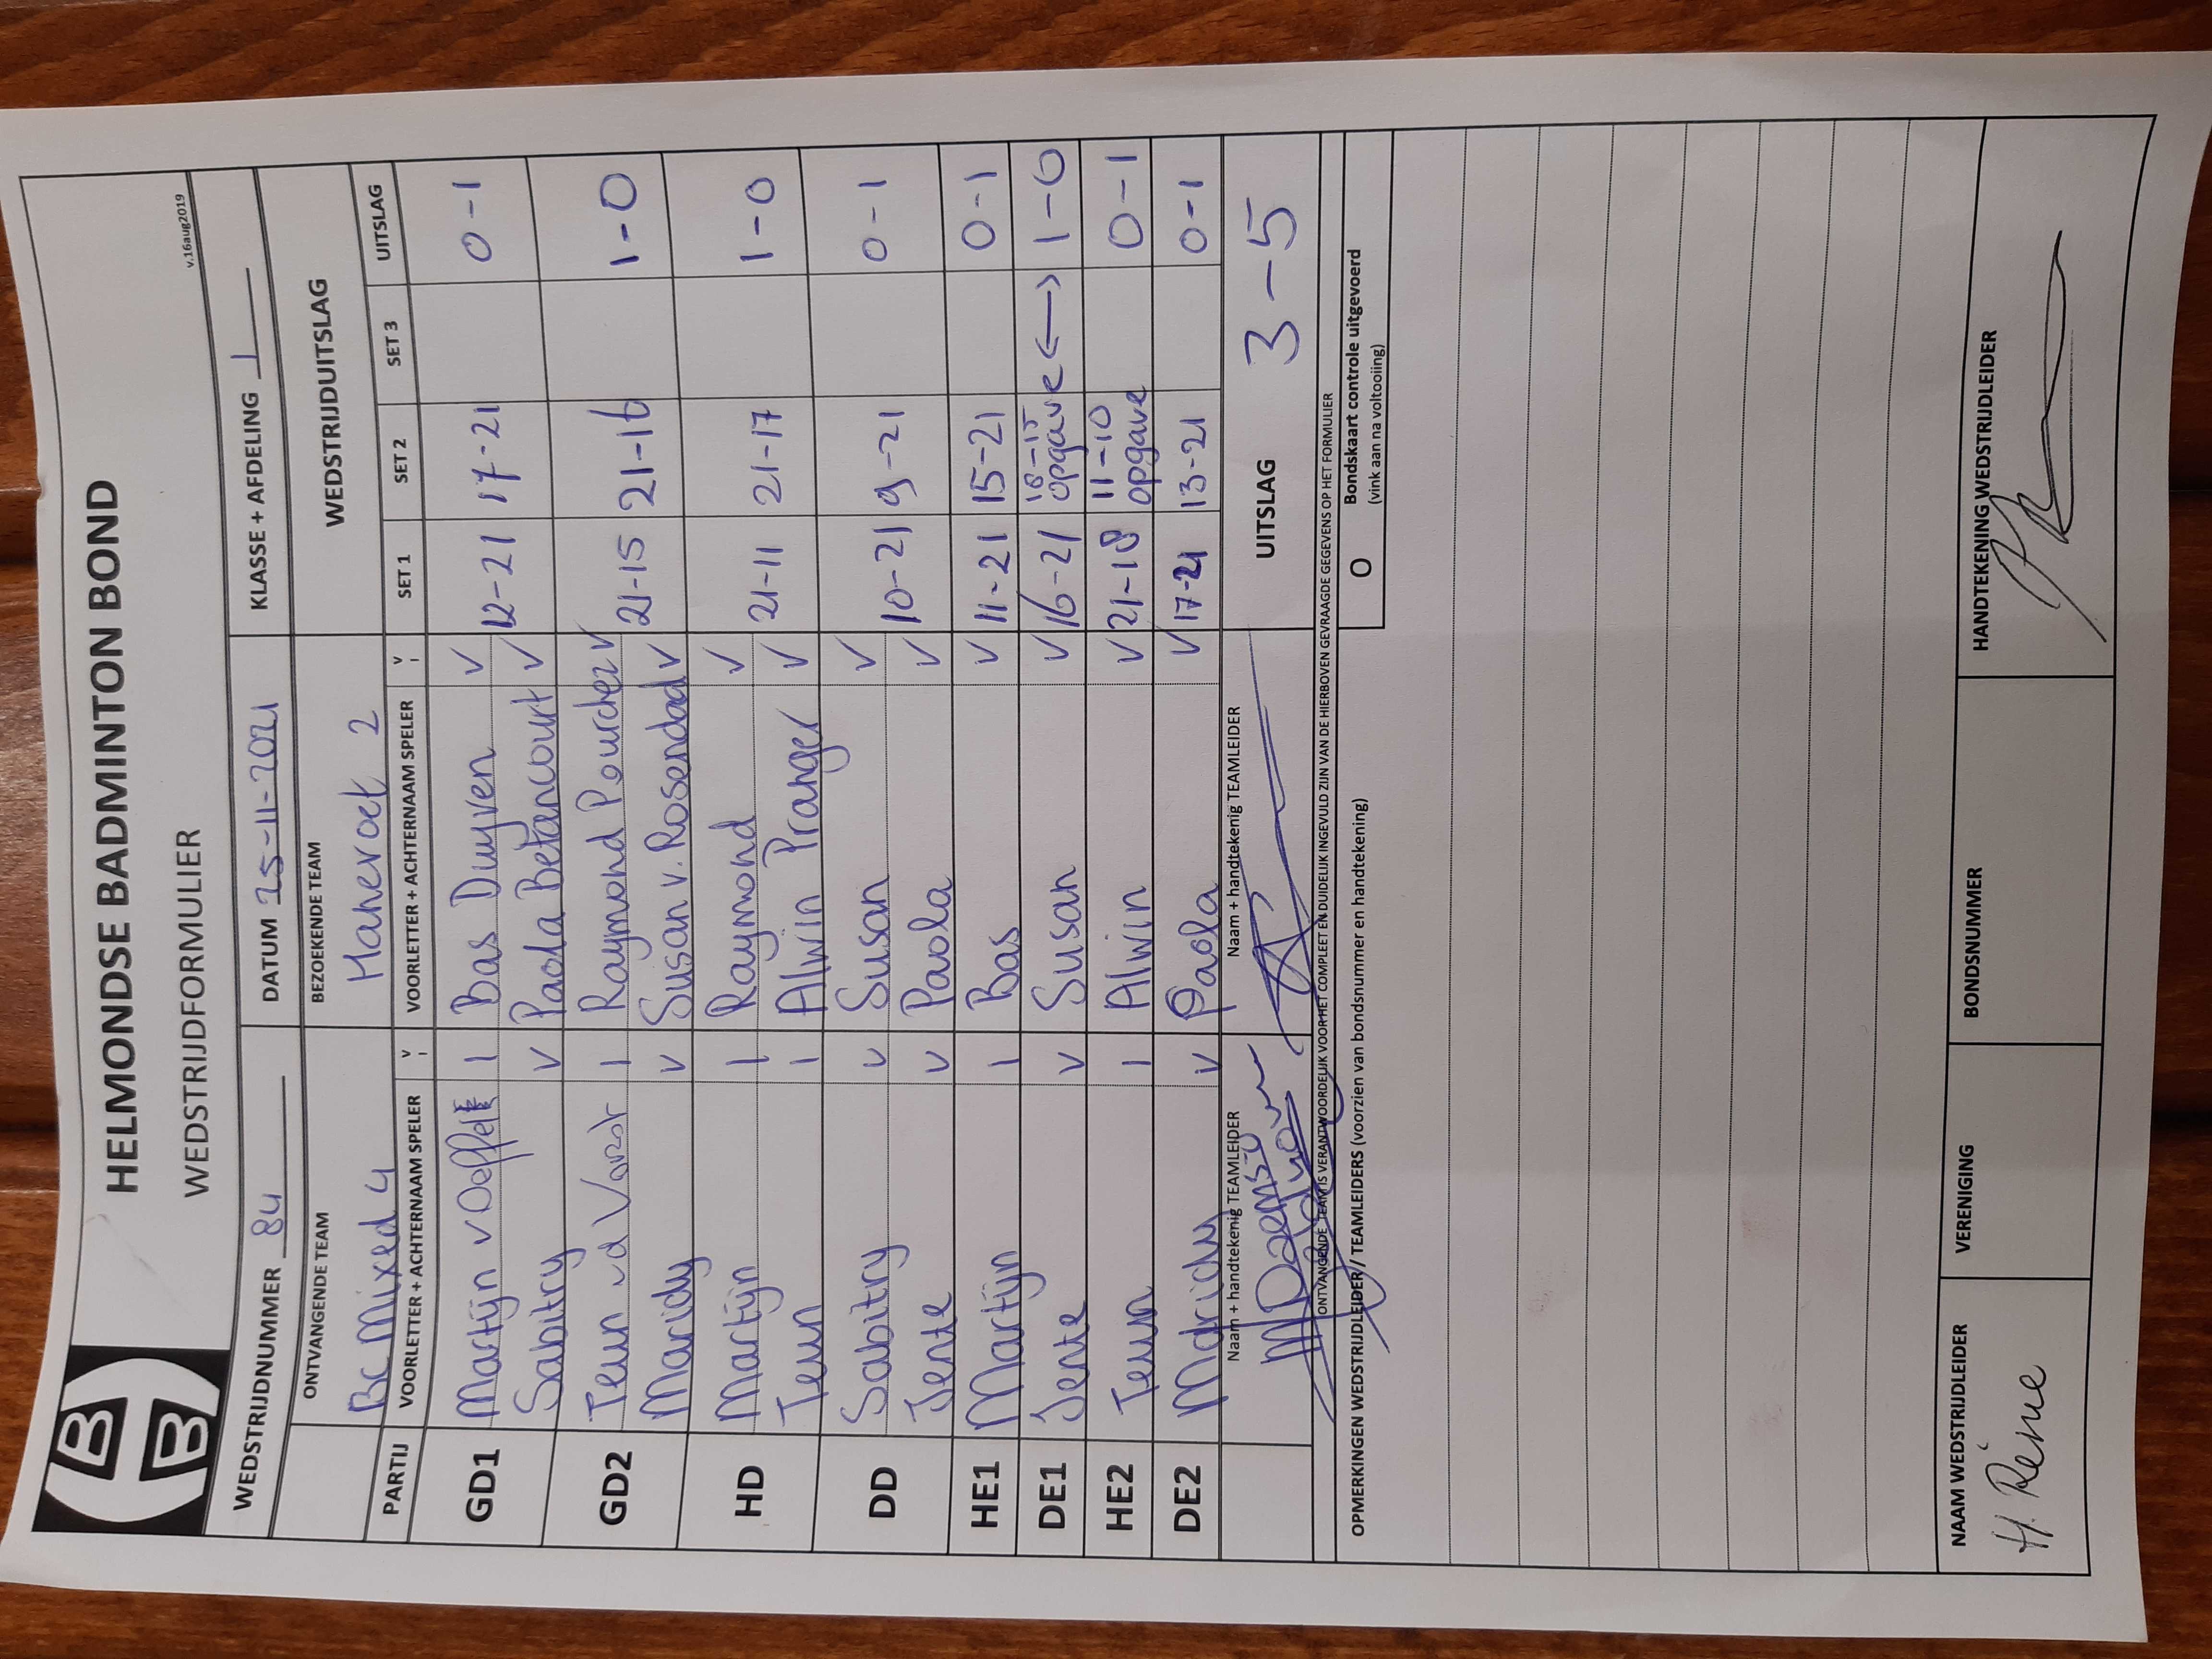 HELMONDSE BADMINTON BOND
WEDSTRIJDFORMULIER
v.16aug2019
WEDSTRIJDNUMMER 84 DATUM 25-11-2021 KLASSE + AFDELING 1
ONTVANGENDE TEAM BEZOEKENDE TEAM WEDSTRIJDUITSLAG
BC Mixed 4 Haneroet 2
PARTIJ VOORLETTER + ACHTERNAAM SPELER V VOORLETTER + ACHTERNAAM SPELER V SET 1 SET 2 SET 3 UITSLAG
GD1 Martijn v Oeffelt I Bas Duyven V 12-21 17-21 0-1
Sabitry V Paola Betancourt V
GD2 Teun vd Vorst I Raymond Peurcher V 21-15 21-16 1-0
Maridy V Susan v. Rosendaal V
HD Martijn I Raymond V 21-11 21-17 1-0
Teun I Alwin Pranger V
DD Sabitry V Susan V 10-21 9-21 0-1
Jente V Paola V
HE1 Martijn I Bas V 11-21 15-21 0-1
DE1 Jente V Susan V 16-21 18-15 opgave <-> 1-0
HE2 Teun I Alwin V 21-18 11-10 opgave 0-1
DE2 Maridy V Paola V 17-21 13-21 0-1
Naam + handtekenig TEAMLEIDER Naam + handtekenig TEAMLEIDER UITSLAG 3-5
ONTVANGENDE TEAM IS VERANTWOORDELIJK VOOR HET COMPLEET EN DUIDELIJK INGEVULD ZIJN VAN DE HIERBOVEN GEVRAAGDE GEGEVENS OP HET FORMULIER
OPMERKINGEN WEDSTRIJDLEIDER / TEAMLEIDERS (voorzien van bondsnummer en handtekening)
O Bondskaart controle uitgevoerd
(vink aan na voltooiing)
NAAM WEDSTRIJDLEIDER VERENIGING BONDSNUMMER HANDTEKENING WEDSTRIJDLEIDER
H. Réne